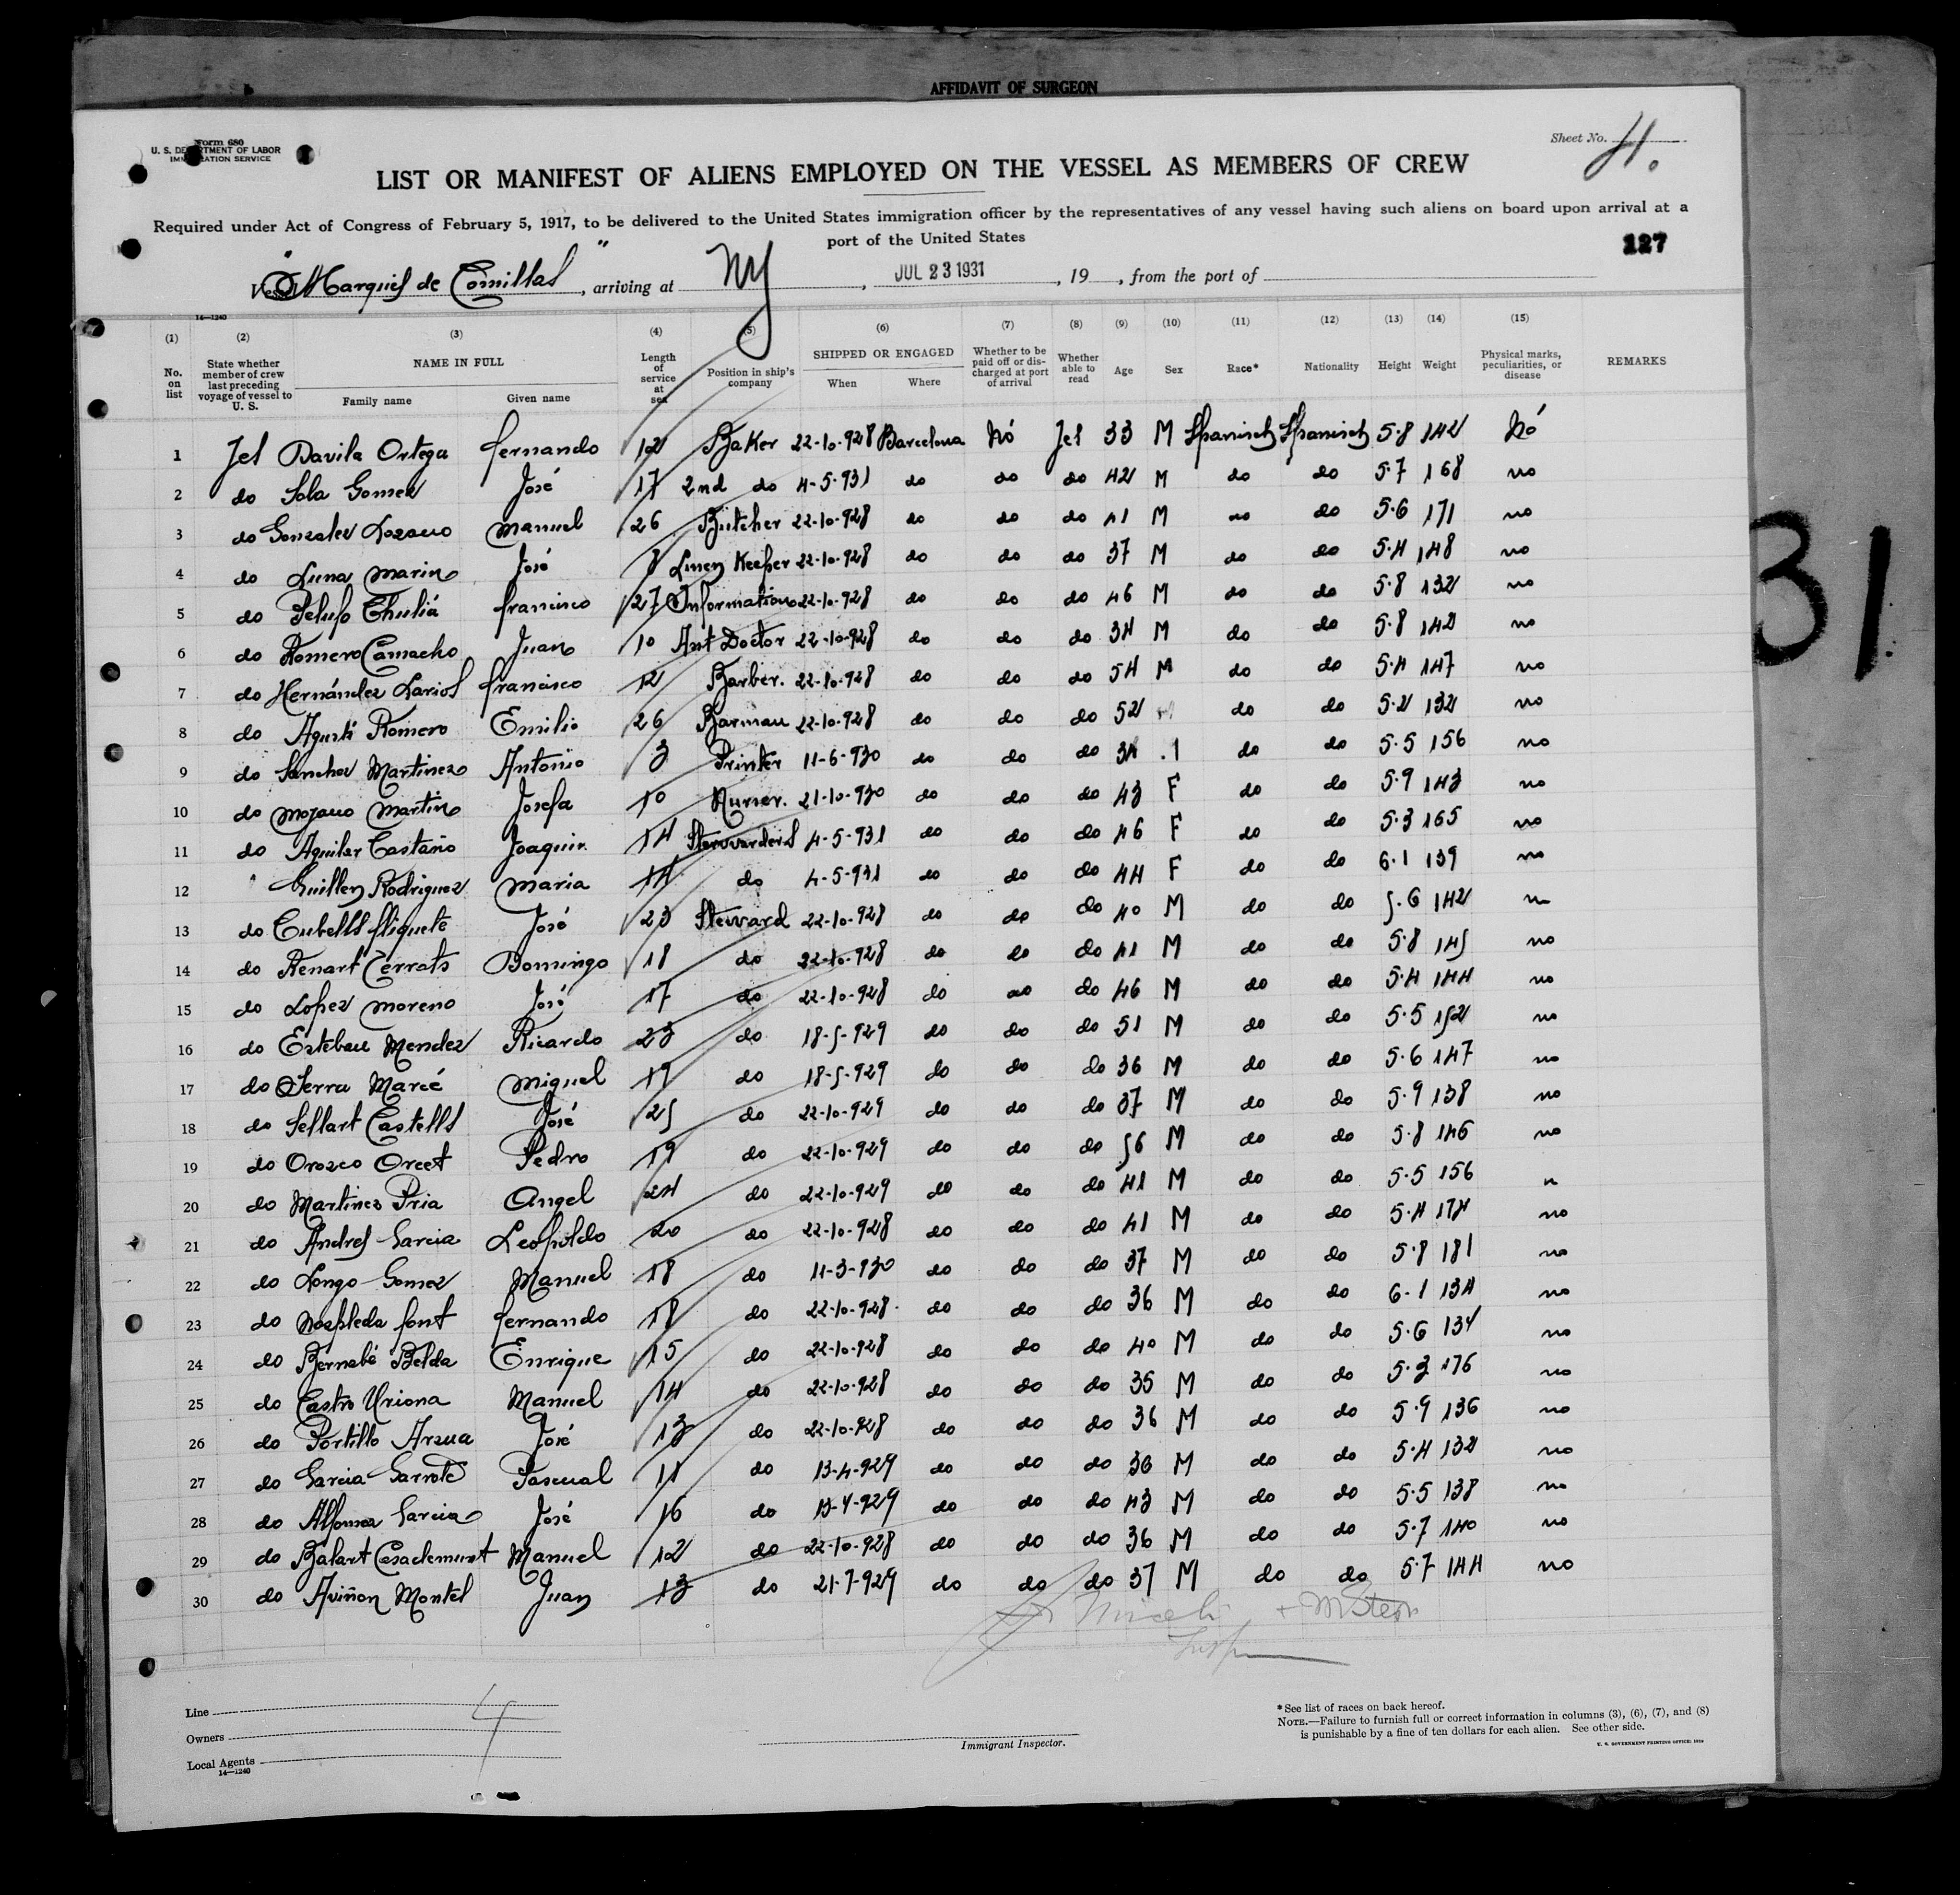 AFFIDAVIT OF SURGEON
Form 680
U. S. DEPARTMENT OF LABOR
IMMIGRATION SERVICE
Sheet No. 4.
LIST OR MANIFEST OF ALIENS EMPLOYED ON THE VESSEL AS MEMBERS OF CREW
Required under Act of Congress of February 5, 1917, to be delivered to the United States immigration officer by the representatives of any vessel having such aliens on board upon arrival at a
port of the United States
127
Vessel "Marqués de Comillas", arriving at NY, JUL 23 1931, 19, from the port of
14—1240
(1) (2) (3) (4) (5) (6) (7) (8) (9) (10) (11) (12) (13) (14) (15)
No. on list State whether member of crew last preceding voyage of vessel to U. S. NAME IN FULL Family name Given name Length of service at sea Position in ship's company SHIPPED OR ENGAGED When Where Whether to be paid off or discharged at port of arrival Whether able to read Age Sex Race* Nationality Height Weight Physical marks, peculiarities, or disease REMARKS
1 Jes Davila Ortega fernando 12 Baker 22-10-928 Barcelona Nó Jes 33 M Spanisch Spanisch 5.8 142 Nó
2 do Sola Gomez José 17 2nd do 4-5-931 do do do 42 M do do 5.7 168 no
3 do Gonzalez Lozano Manuel 26 Butcher 22-10-928 do do do 41 M do do 5.6 171 no
4 do Luna Marin José Linen Keeper 22-10-928 do do do 37 M do do 5.4 148 no
5 do Pelufo Chuliá francisco 27 Information 22-10-928 do do do 46 M do do 5.8 132 no
6 do Romero Camacho Juan 10 Ast Doctor 22-10-928 do do do 34 M do do 5.8 142 no
7 do Hernández Larios francisco 12 Barber. 22-10-928 do do do 54 M do do 5.4 147 no
8 do Agusti Romero Emilio 26 Barman 22-10-928 do do do 52 M do do 5.2 132 no
9 do Sanchez Martinez Antonio 3 Printer 11-6-930 do do do 34 do do 5.5 156 no
10 do Mozano Martin Josefa 10 Nurser. 21-10-930 do do do 43 F do do 5.9 143 no
11 do Aguilar Castaño Joaquin 14 Stewardess 4-5-931 do do do 46 F do do 5.3 165 no
12 " Guillen Rodriguez Maria 14 do 4-5-931 do do do 44 F do do 6.1 139 no
13 do Cubells José 23 Steward 22-10-928 do do do 40 M do do 5.6 142 no
14 do Renart Cerrats Domingo 18 do 22-10-928 do do do 41 M do do 5.8 145 no
15 do Lopez Moreno José 17 do 22-10-928 do do do 46 M do do 5.4 144 no
16 do Esteban Mendez Ricardo 23 do 18-5-929 do do do 51 M do do 5.5 152 no
17 do Serra Marcé Miguel 19 do 18-5-929 do do do 36 M do do 5.6 147 no
18 do Sellart Castells José 25 do 22-10-929 do do do 37 M do do 5.9 138 no
19 do Orozco Orcet Pedro 19 do 22-10-929 do do do 56 M do do 5.8 146 no
20 do Martinez Pria Angel 24 do 22-10-929 do do do 41 M do do 5.5 156 n
21 do Andres Garcia Leopoldo 20 do 22-10-928 do do do 41 M do do 5.4 174 no
22 do Longo Gomez Manuel 18 do 11-3-930 do do do 37 M do do 5.8 181 no
23 do Nospleda font fernando 18 do 22-10-928 do do do 36 M do do 6.1 134 no
24 do Bernabé Belda Enrique 15 do 22-10-928 do do do 40 M do do 5.6 134 no
25 do Castro Uriona Manuel 14 do 22-10-928 do do do 35 M do do 5.3 176 no
26 do Portillo Arzua José 13 do 22-10-928 do do do 36 M do do 5.9 136 no
27 do Garcia Garrote Pascual 11 do 13-4-929 do do do 36 M do do 5.4 132 no
28 do Alfonso Garcia José 16 do 13-4-929 do do do 43 M do do 5.5 138 no
29 do Balart Casademunt Manuel 12 do 22-10-928 do do do 36 M do do 5.7 140 no
30 do Aviñon Montel Juan 13 do 21-7-929 do do do 37 M do do 5.7 144 no
31
Line
Owners
Local Agents
14—1240
4
Immigrant Inspector.
*See list of races on back hereof.
NOTE.—Failure to furnish full or correct information in columns (3), (6), (7), and (8)
is punishable by a fine of ten dollars for each alien. See other side.
U. S. GOVERNMENT PRINTING OFFICE: 1929